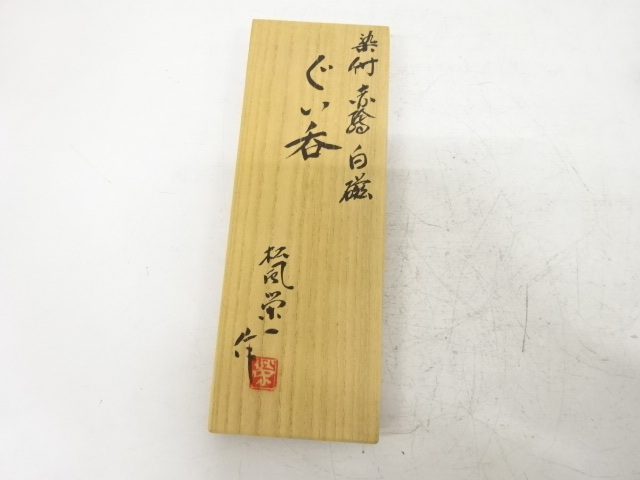 染付 赤繪 白磁
ぐい呑
松風栄一
作
栄